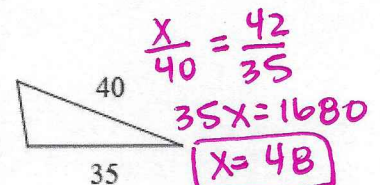 x/40 = 42/35
40
35x = 1680
x = 48
35